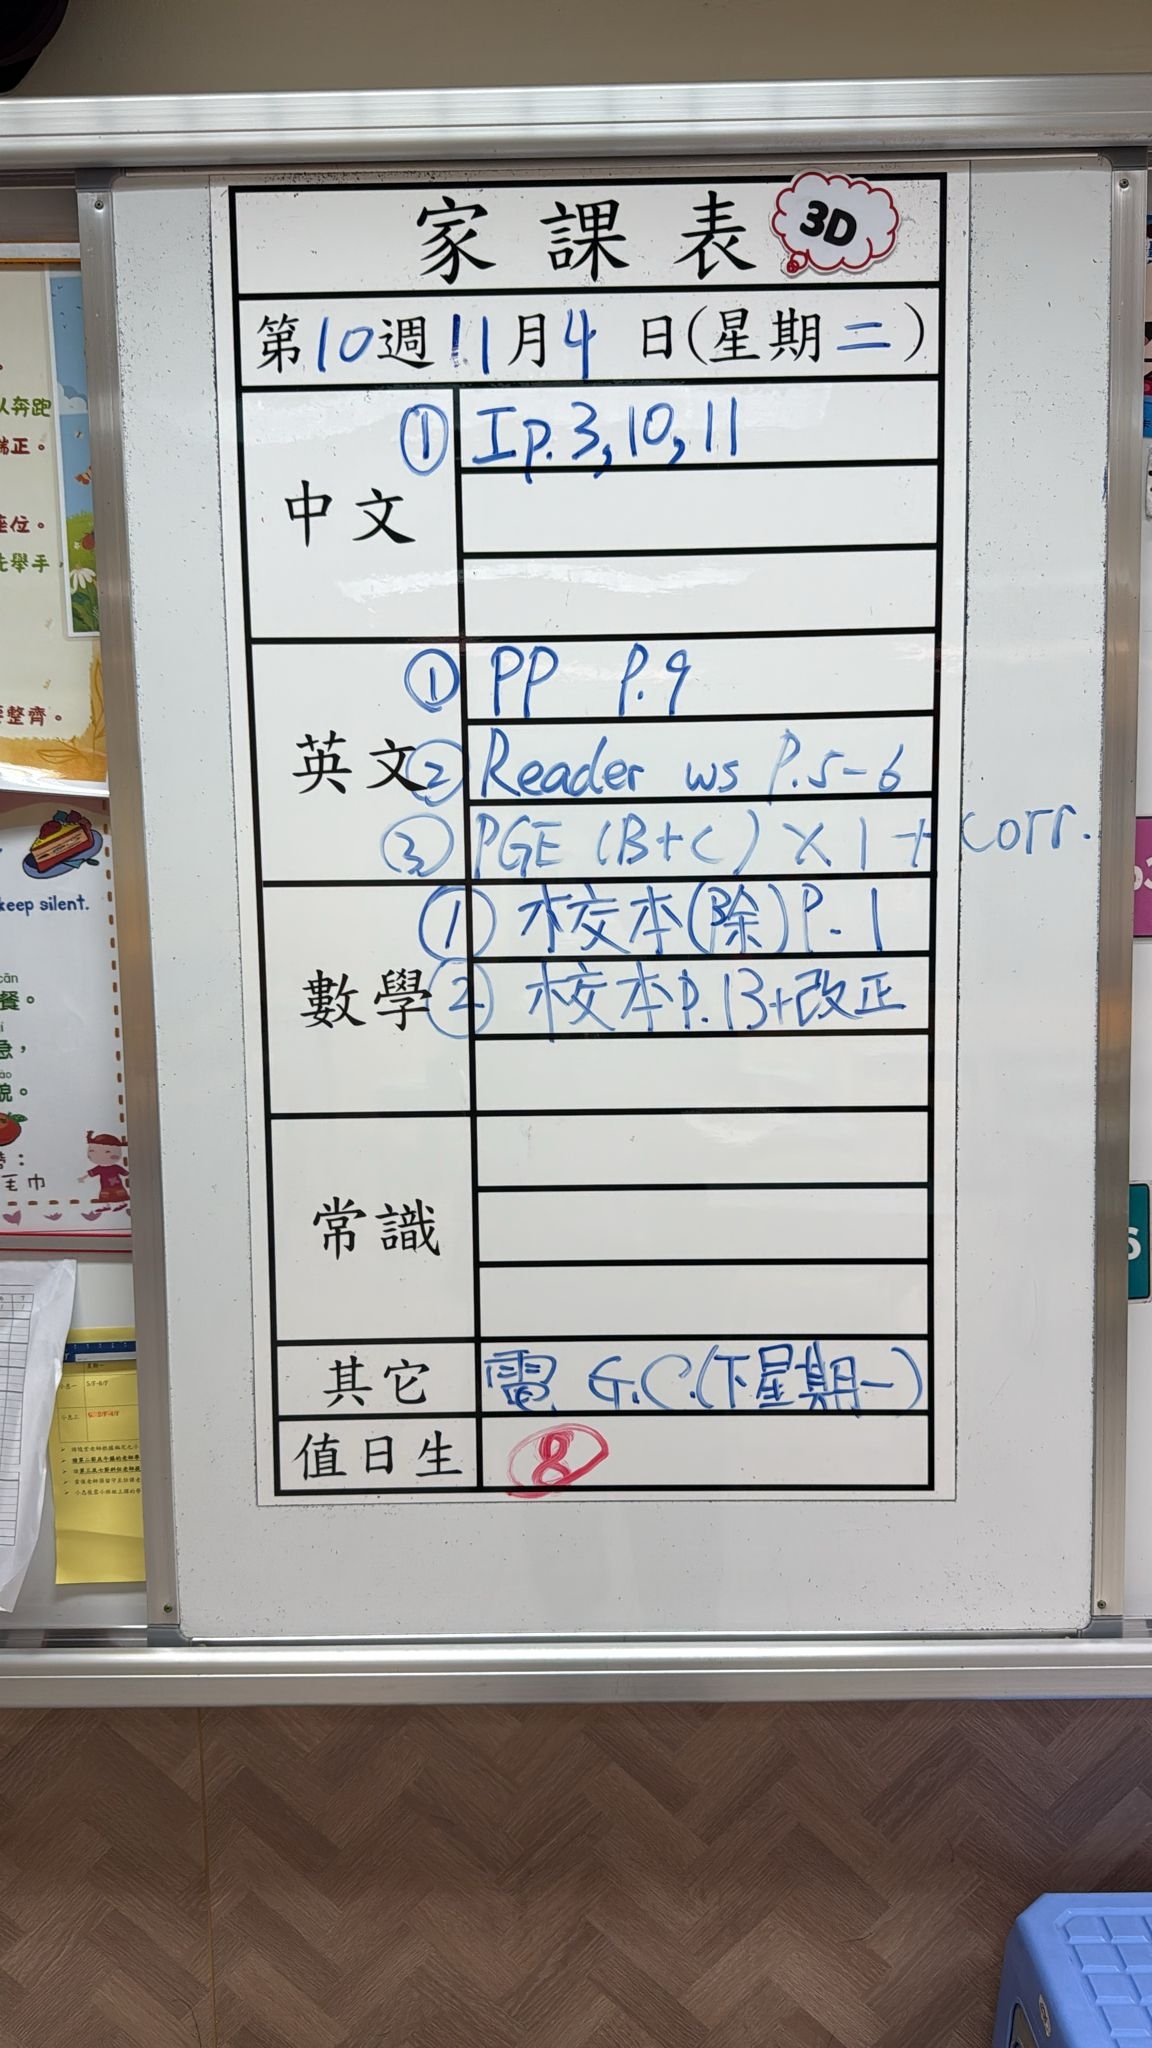 家課表 3D
第10週11月4日(星期二)
中文
① I p.3,10,11
英文
① PP P.9
② Reader ws P.5-6
③ PGE (B+C) x 1 + corr.
數學
① 校本(除)P.1
② 校本P.13+改正
常識
其它 電 G.C.(下星期一)
值日生 8
奔跑
端正。
座位。
舉手
整齊。
keep silent.
cān
餐。
急，
貌。
毛巾
星期一